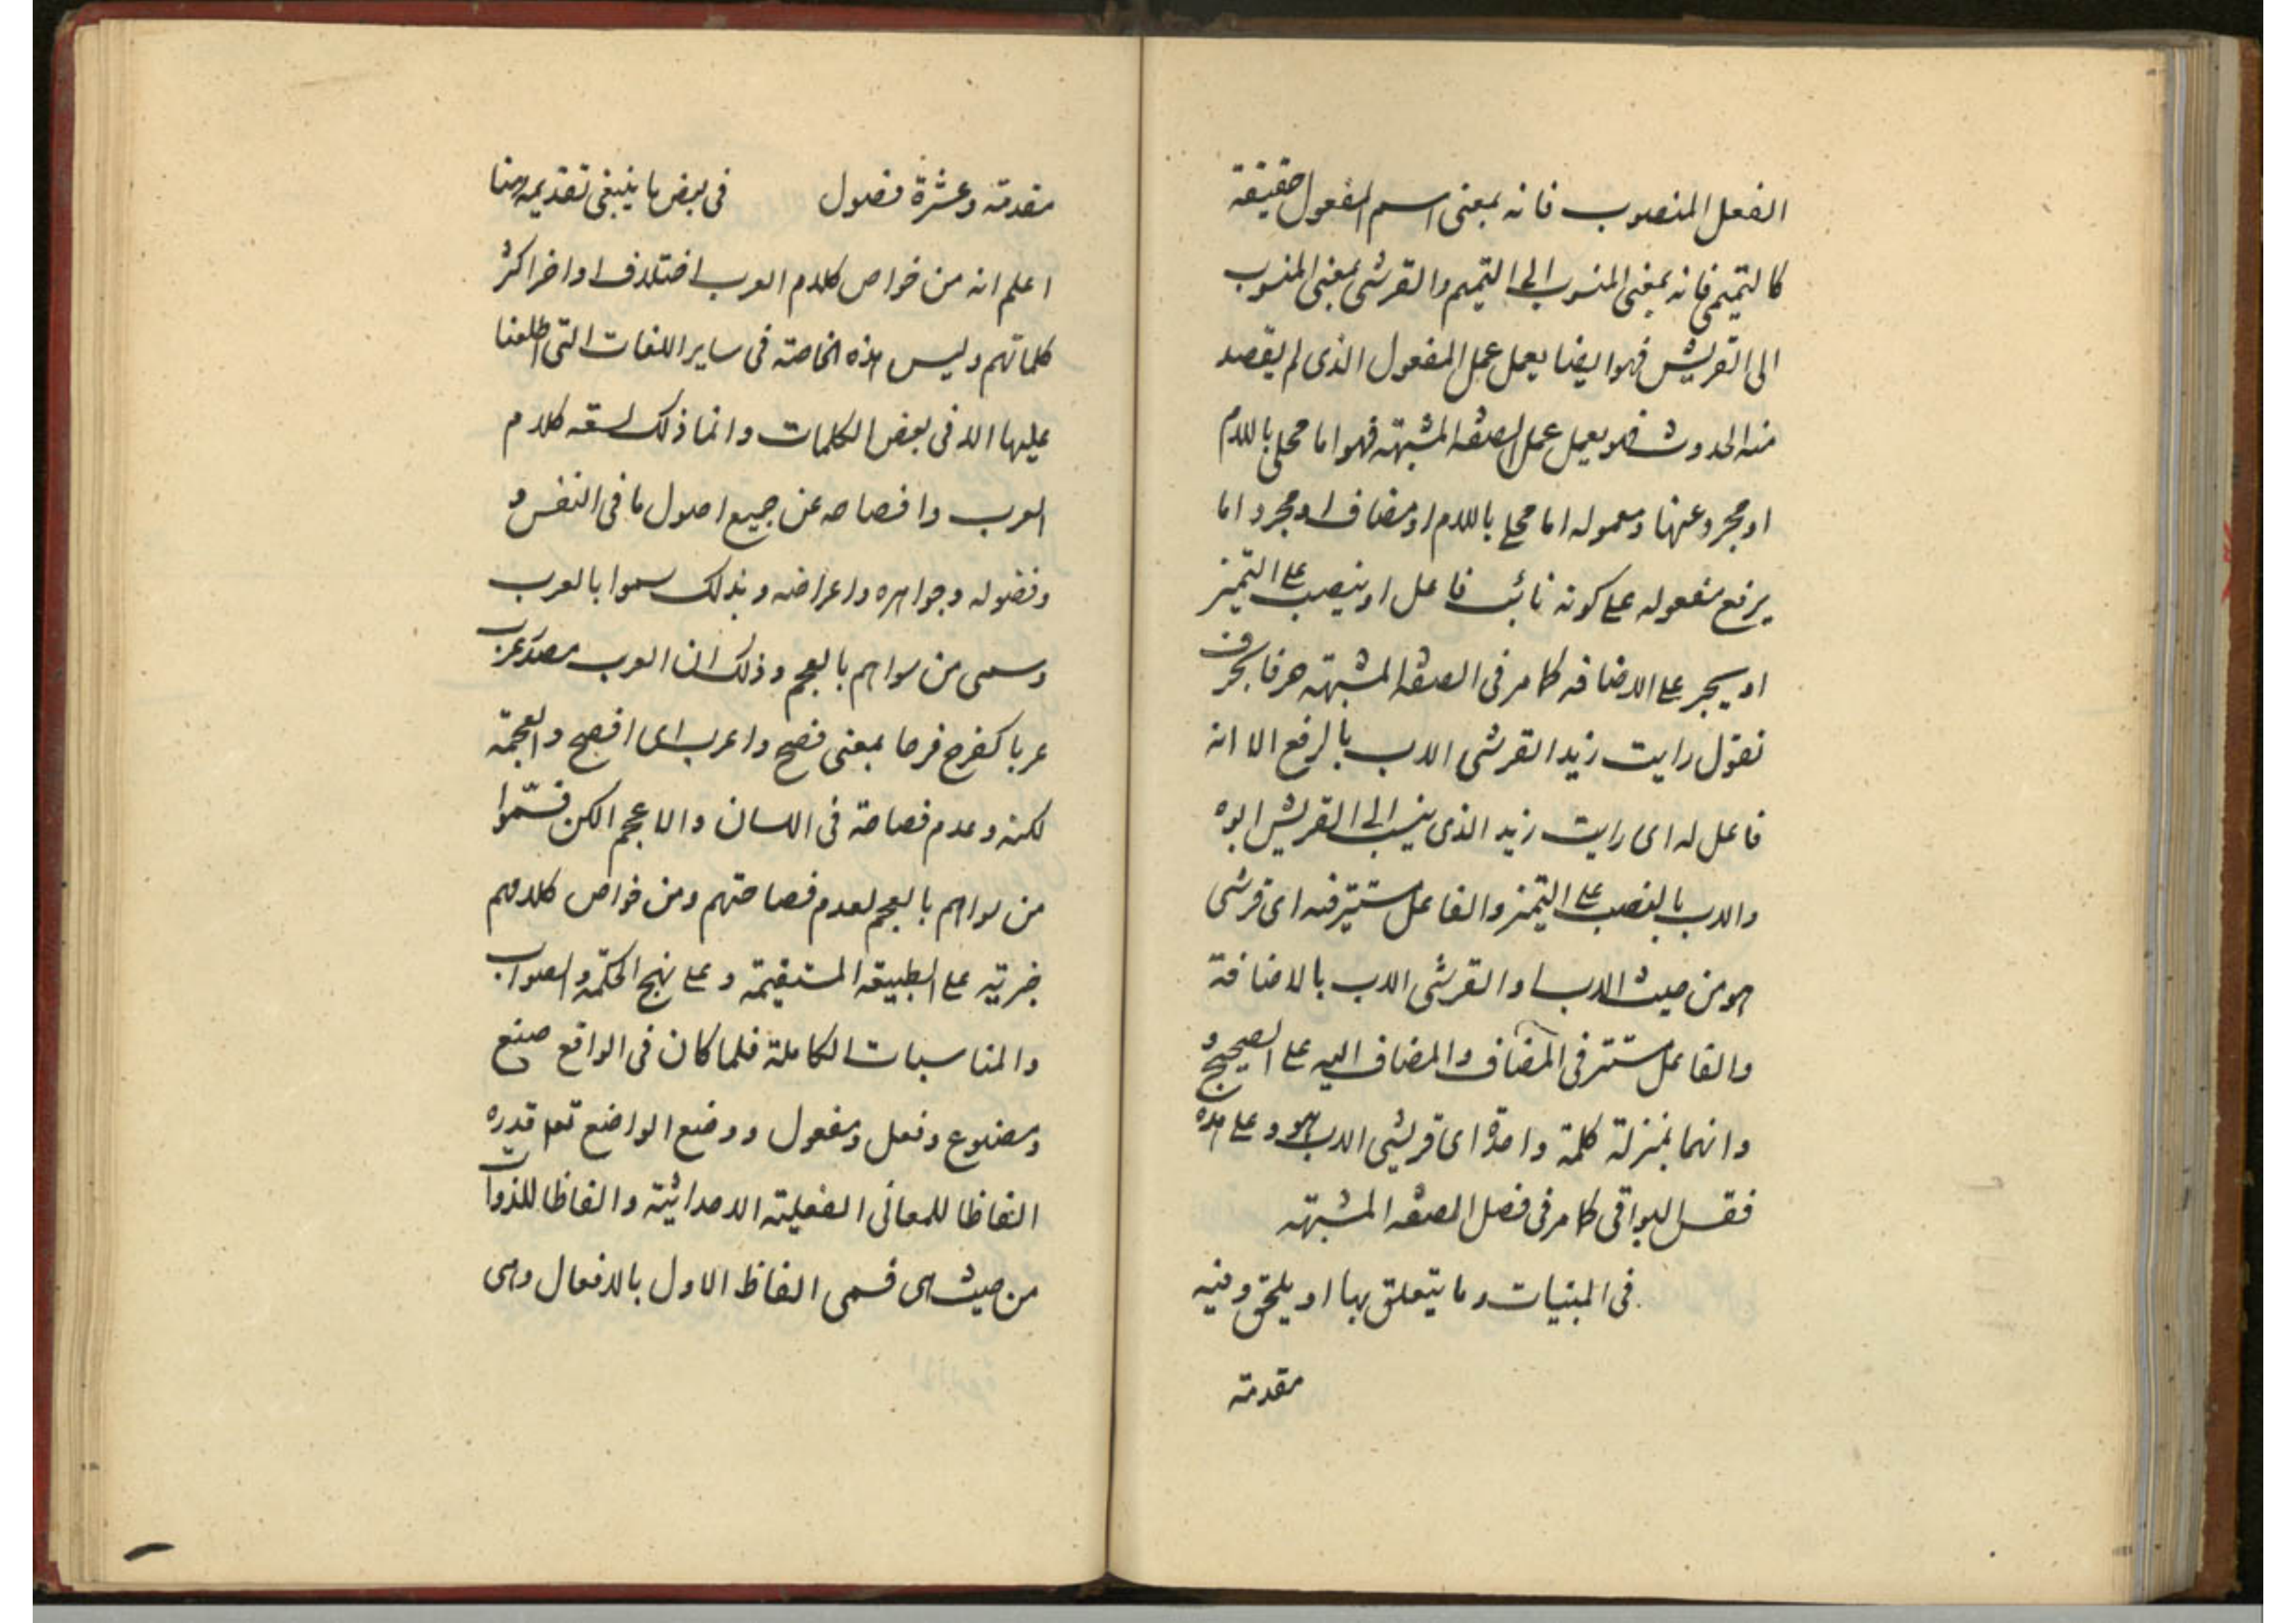 الفعل المنصوب فانه بمعنى اسم المفعول حقيقة
كالتميمى فانه بمعنى المنسوب الى التميم والقرشى بمعنى المنسوب
الى القريش فهو ايضا يعمل عمل المفعول الذى لم يقصد
منه الحدوث فلو يعمل عمل الصفة المشبهة فهو اما محلى باللام
او مجرد عنها ومعموله اما محلى باللام او مضاف او مجرد اما
يرفع مفعوله على كونه نائب فاعل او ينصب على التميز
او يجر على الاضافه كما مر فى الصفة المشبهة حرفا بحرف
تقول رايت زيد القرشى الاب بالرفع الا انه
فاعل له اى رايت زيد الذى ينسب الى القريش ابوه
والاب بالنصب على التميز والفاعل مستتر فيه اى قرشى
هو من حيث الاب او القرشى الاب بالاضافة
والفاعل مستتر فى المضاف والمضاف اليه على الصحيح و
وانهما بمنزلة كلمة واحدة اى قريشى الاب هو وعلى هذه
فقس البواقى كما مر فى فصل الصفة المشبهة
فى المبنيات وما يتعلق بها او يلحق وفيه
مقدمة
مقدمة وعشرة فصول فى بعض ما ينبغى تقديمه هنا
اعلم انه من خواص كلام العرب اختلاف اواخر اكثر
كلماتهم وليس هذه الخاصة فى ساير اللغات التى اطلعنا
عليها الا فى بعض الكلمات وانما ذلك لسعة كلام
العرب وافصاحه عن جميع اصول ما فى النفس و
وفضوله وجواهره واعراضه وبذلك سموا بالعرب
وسمى من سواهم بالعجم وذلك ان العرب مصدر عرب
عربا كفرح فرحا بمعنى فصح واعرب اى افصح والعجمة
لكنه وعدم فصاحة فى اللسان والاعجم الكن فسموا
من سواهم بالعجم لعدم فصاحتهم ومن خواص كلامهم
جريه على الطبيعة المستقيمة وعلى نهج الحكمة والصواب
والمناسبات الكاملة فلما كان فى الواقع صنع
ومصنوع وفعل ومفعول ووضع الواضع تعم قدره
الفاظا للمعانى الفعلية الاحداثية والفاظا للذوات
من حيث هى فسمى الفاظ الاول بالافعال وهى